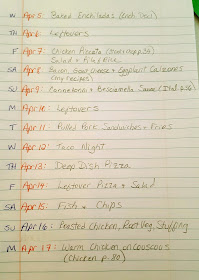 W Apr 5: Baked Enchiladas (Ench Devi)
TH Apr 6: Leftovers
F Apr 7: Chicken Piccata
Salad + Rice
SA Apr 8: Bacon, Goat Cheese + Eggplant Calzones
(my recipes)
SU Apr 9: Cannelloni + Besciamella Sauce (Ital. p.36)
M Apr 10: Leftovers
T Apr 11: Pulled Pork Sandwiches + Fries
W Apr 12: Taco Night
TH Apr 13: Deep Dish Pizza
F Apr 14: Leftover Pizza + Salad
SA Apr 15: Fish + Chips
SU Apr 16: Roasted Chicken, Root Veg, Stuffing
M Apr 17: Warm Chicken on Couscous
(Chicken p. 80)